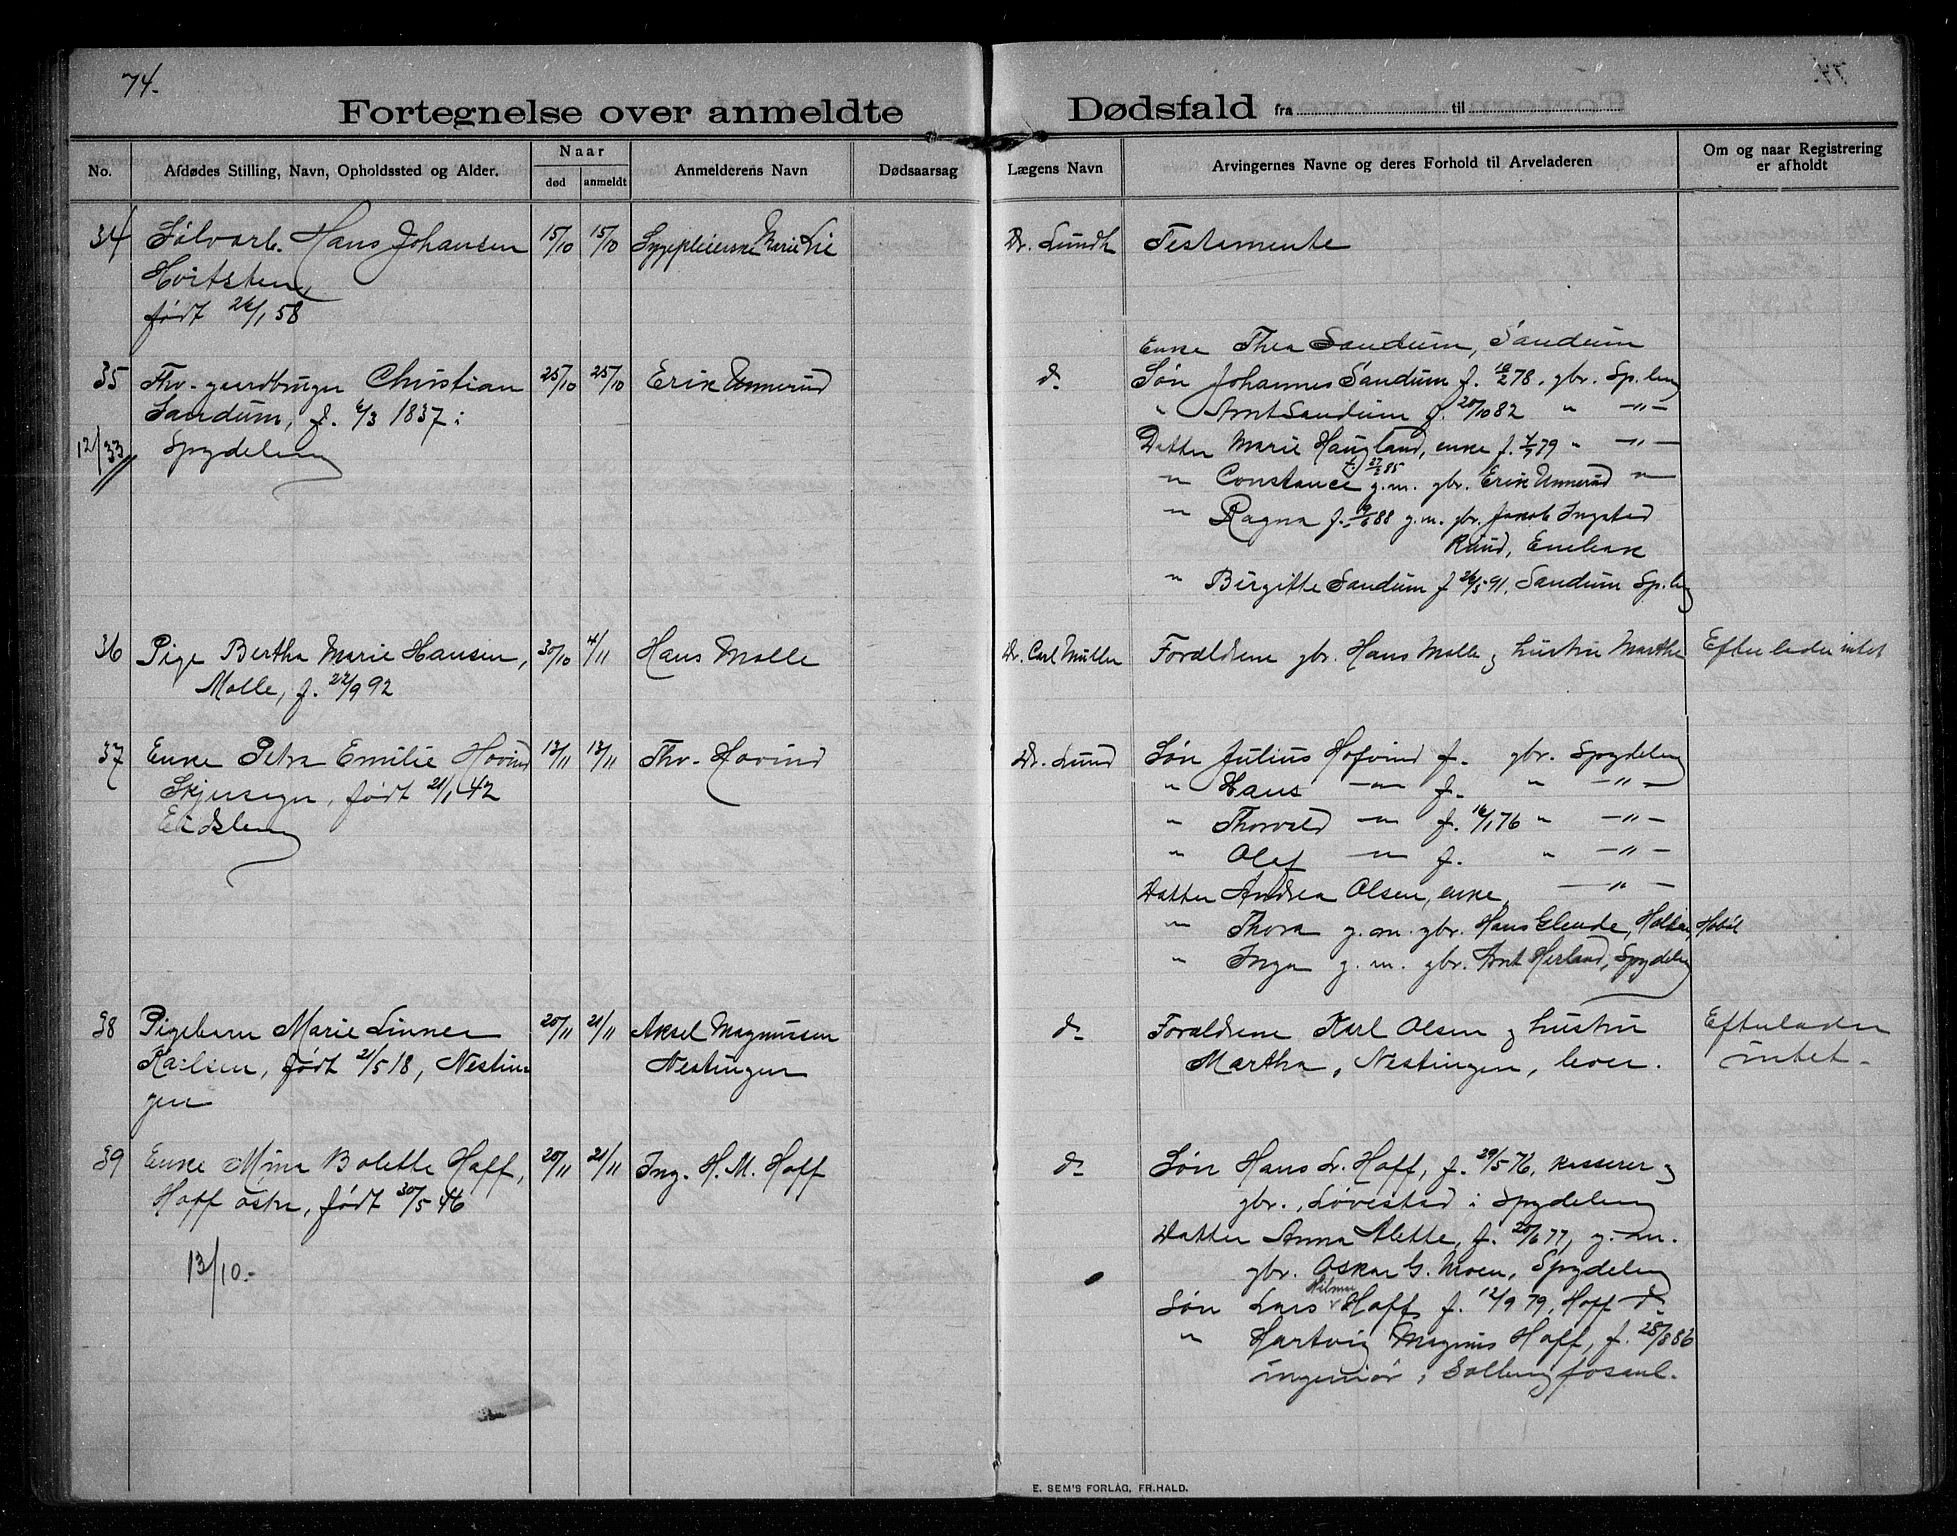 74.
Fortegnelse over anmeldte Dødsfald fra til
No.
Afdødes Stilling, Navn, Opholdssted og Alder.
Naar
død
anmeldt
Anmelderens Navn
Dødsaarsag
Lægens Navn
Arvingernes Navne og deres Forhold til Arveladeren
Om og naar Registrering
er afholdt
34 Sølvarb. Hans Johansen 15/10 15/10 Sygepleierske Marie Lie Dr. Lundh Testamente
Hvitsten,
født 26/1 58
Enke Thea Sandum, Sandum
35 Fhv. gaardbruger Christian 25/10 25/10 Erik Unnerud d. Søn Johannes Sandum f. 18/2 78. gbr. Sp.berg
Sandum, f. 6/3 1837 i " Arnt Sandum f. 20/10 82 " -"-
12/33 Spydeberg
Datter Marie Haugland, enke f. 4/7 79 " -"-
" Constance f. 27/2 85 g.m. gbr. Erik Unnerud "
" Ragna f. 9/6 88 g.m. gbr. Jakob Ingstad
Rud, Enebak
" Birgitte Sandum f 26/5 91, Sandum Sp.berg
36 Pige Bertha Marie Hansen, 30/10 4/11 Hans Molle Dr. Carl Müller Forældrene gbr. Hans Molle og hustru Marthe Efterlader intet
Molle, f. 22/9 92
37 Enke Petra Emilie Hovind 13/11 13/11 Thv. Hovind Dr. Lund Søn Julius Hofvind f. gbr. Spydeberg
Skjeseger, født 21/1 42 " Hans -"- f. " -"-
Eidsberg " Thorvald -"- f. 16/1 76 " -"-
" Olaf -"- f. " -"-
Datter Andrea Olsen, enke, -"-
" Thora g.m. gbr. Hans Glende, Hobøl
" Inga g.m. gbr. Arnt Herland, Spydeberg
38 Pigebarn Marie Linnea 20/11 21/11 Aksel Magnussen d. Forældrene Karl Olsen og hustru Efterlader
Karlsen, født 21/5 18, Nestin Nestingen Martha, Nestingen, lever. intet.
gen
39 Enke Mina Bolette Hoff, 20/11 21/11 Ing. H. M. Hoff d. Søn Hans Kr. Hoff, f. 29/5 76, kasserer og
Hoff østre, født 30/5 46 gbr., Løvestad i Spydeberg
Datter Anna Alette, f. 20/6 77, g.m.
13/10.-
gbr. Oskar G. Moen, Spydeberg
Søn Lars Hilmar Hoff f. 12/9 79, Hoff d.
" Hartvig Magnus Hoff, f. 28/8 86
ingeniør, Solbergfossanl.
E. SEM'S FORLAG, FR.HALD.